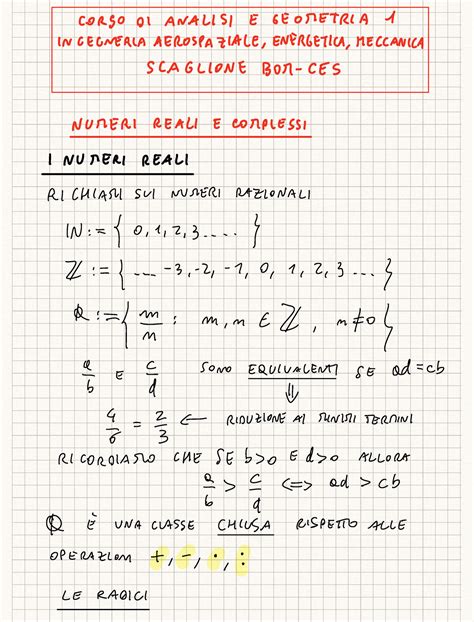 CORSO DI ANALISI E GEOMETRIA 1
INGEGNERIA AEROSPAZIALE, ENERGETICA, MECCANICA
SCAGLIONE BOM-CES
NUMERI REALI E COMPLESSI
I NUMERI REALI
RICHIAMI SUI NUMERI RAZIONALI
ℕ := { 0, 1, 2, 3 .... }
ℤ := { ... -3, -2, -1, 0, 1, 2, 3 ... }
ℚ := { m/n : m, n ∈ ℤ, n ≠ 0 }
a/b E c/d SONO EQUIVALENTI SE ad = cb
⇓
4/6 = 2/3 ← RIDUZIONE AI MINIMI TERMINI
RICORDIAMO CHE SE b>0 E d>0 ALLORA
a/b > c/d ⇔ ad > cb
ℚ È UNA CLASSE CHIUSA RISPETTO ALLE
OPERAZIONI +, -, ·, :
LE RADICI